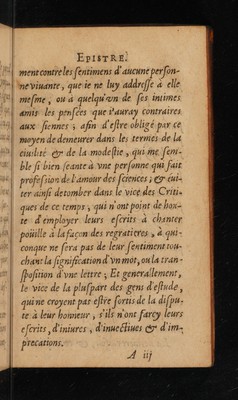 EPISTRE.
ment contre les sentimens d'aucune person-
ne viuante, que ie ne luy addresse à elle
mesme, ou à quelqu'vn de ses intimes
amis les pensées que i'auray contraires
aux siennes; afin d'estre obligé par ce
moyen de demeurer dans les termes de la
ciuilité & de la modestie, qui me sem-
ble si bien seante à vne personne qui fait
profession de l'amour des sciences; & eui-
ter ainsi de tomber dans le vice des Criti-
ques de ce temps, qui n'ont point de hon-
te d'employer leurs escrits à chanter
poüille à la façon des regratieres, à qui-
conque ne sera pas de leur sentiment tou-
chant la signification d'vn mot, ou la tran-
sposition d'vne lettre; Et generallement,
le vice de la pluspart des gens d'estude,
qui ne croyent pas estre sortis de la dispu-
te à leur honneur, s'ils n'ont farcy leurs
escrits, d'iniures, d'inuectiues & d'im-
precations.
A iij